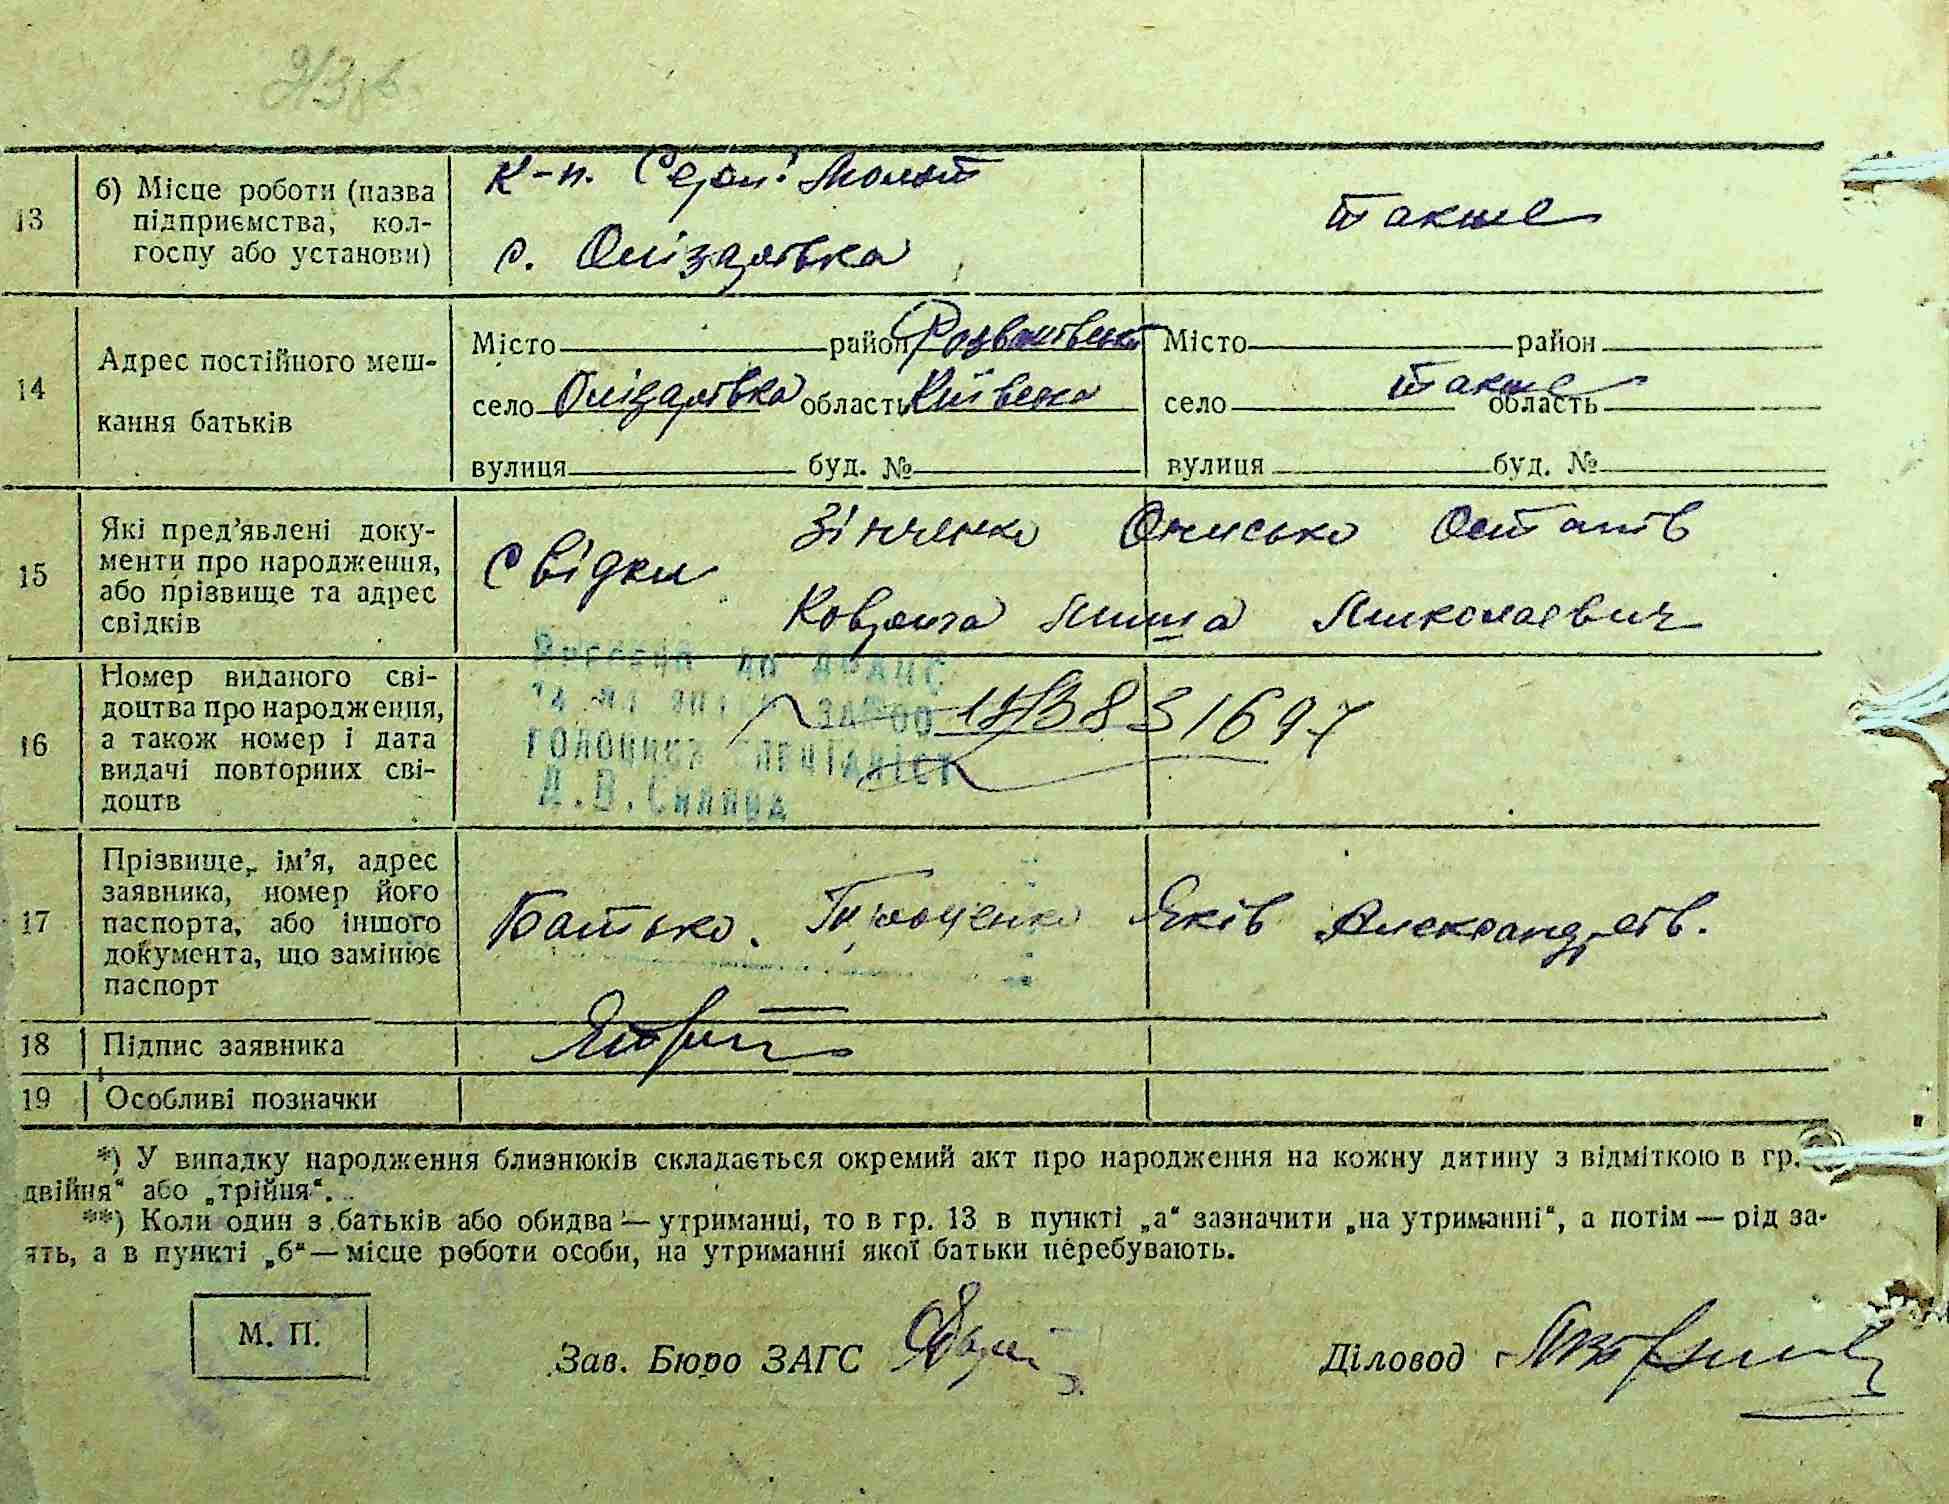 13
б) Місце роботи (назва
підприємства, кол-
госпу або установи)
К-п. Серп і Молот
с. Олізарівка
такше
14
Адрес постійного меш-
кання батьків
Місто район Розважівськ
село Олізарівка область Київська
вулиця буд. №
Місто район
село такше область
вулиця буд. №
15
Які пред'явлені доку-
менти про народження,
або прізвище та адрес
свідків
свідки
Зінченко Онисько Остапів
Миколаевич
16
Номер виданого сві-
доцтва про народження,
а також номер і дата
видачі повторних сві-
доцтв
831697
17
Прізвище, ім'я, адрес
заявника, номер його
паспорта, або іншого
документа, що замінює
паспорт
Батько. Яків Александрів.
18 Підпис заявника
19 Особливі позначки
*) У випадку народження близнюків складається окремий акт про народження на кожну дитину з відміткою в гр.
двійня" або „трійня".
**) Коли один з батьків або обидва — утриманці, то в гр. 13 в пункті „а" зазначити „на утриманні", а потім — рід за-
ять, а в пункті „б" — місце роботи особи, на утриманні якої батьки перебувають.
М. П.
Зав. Бюро ЗАГС
Діловод